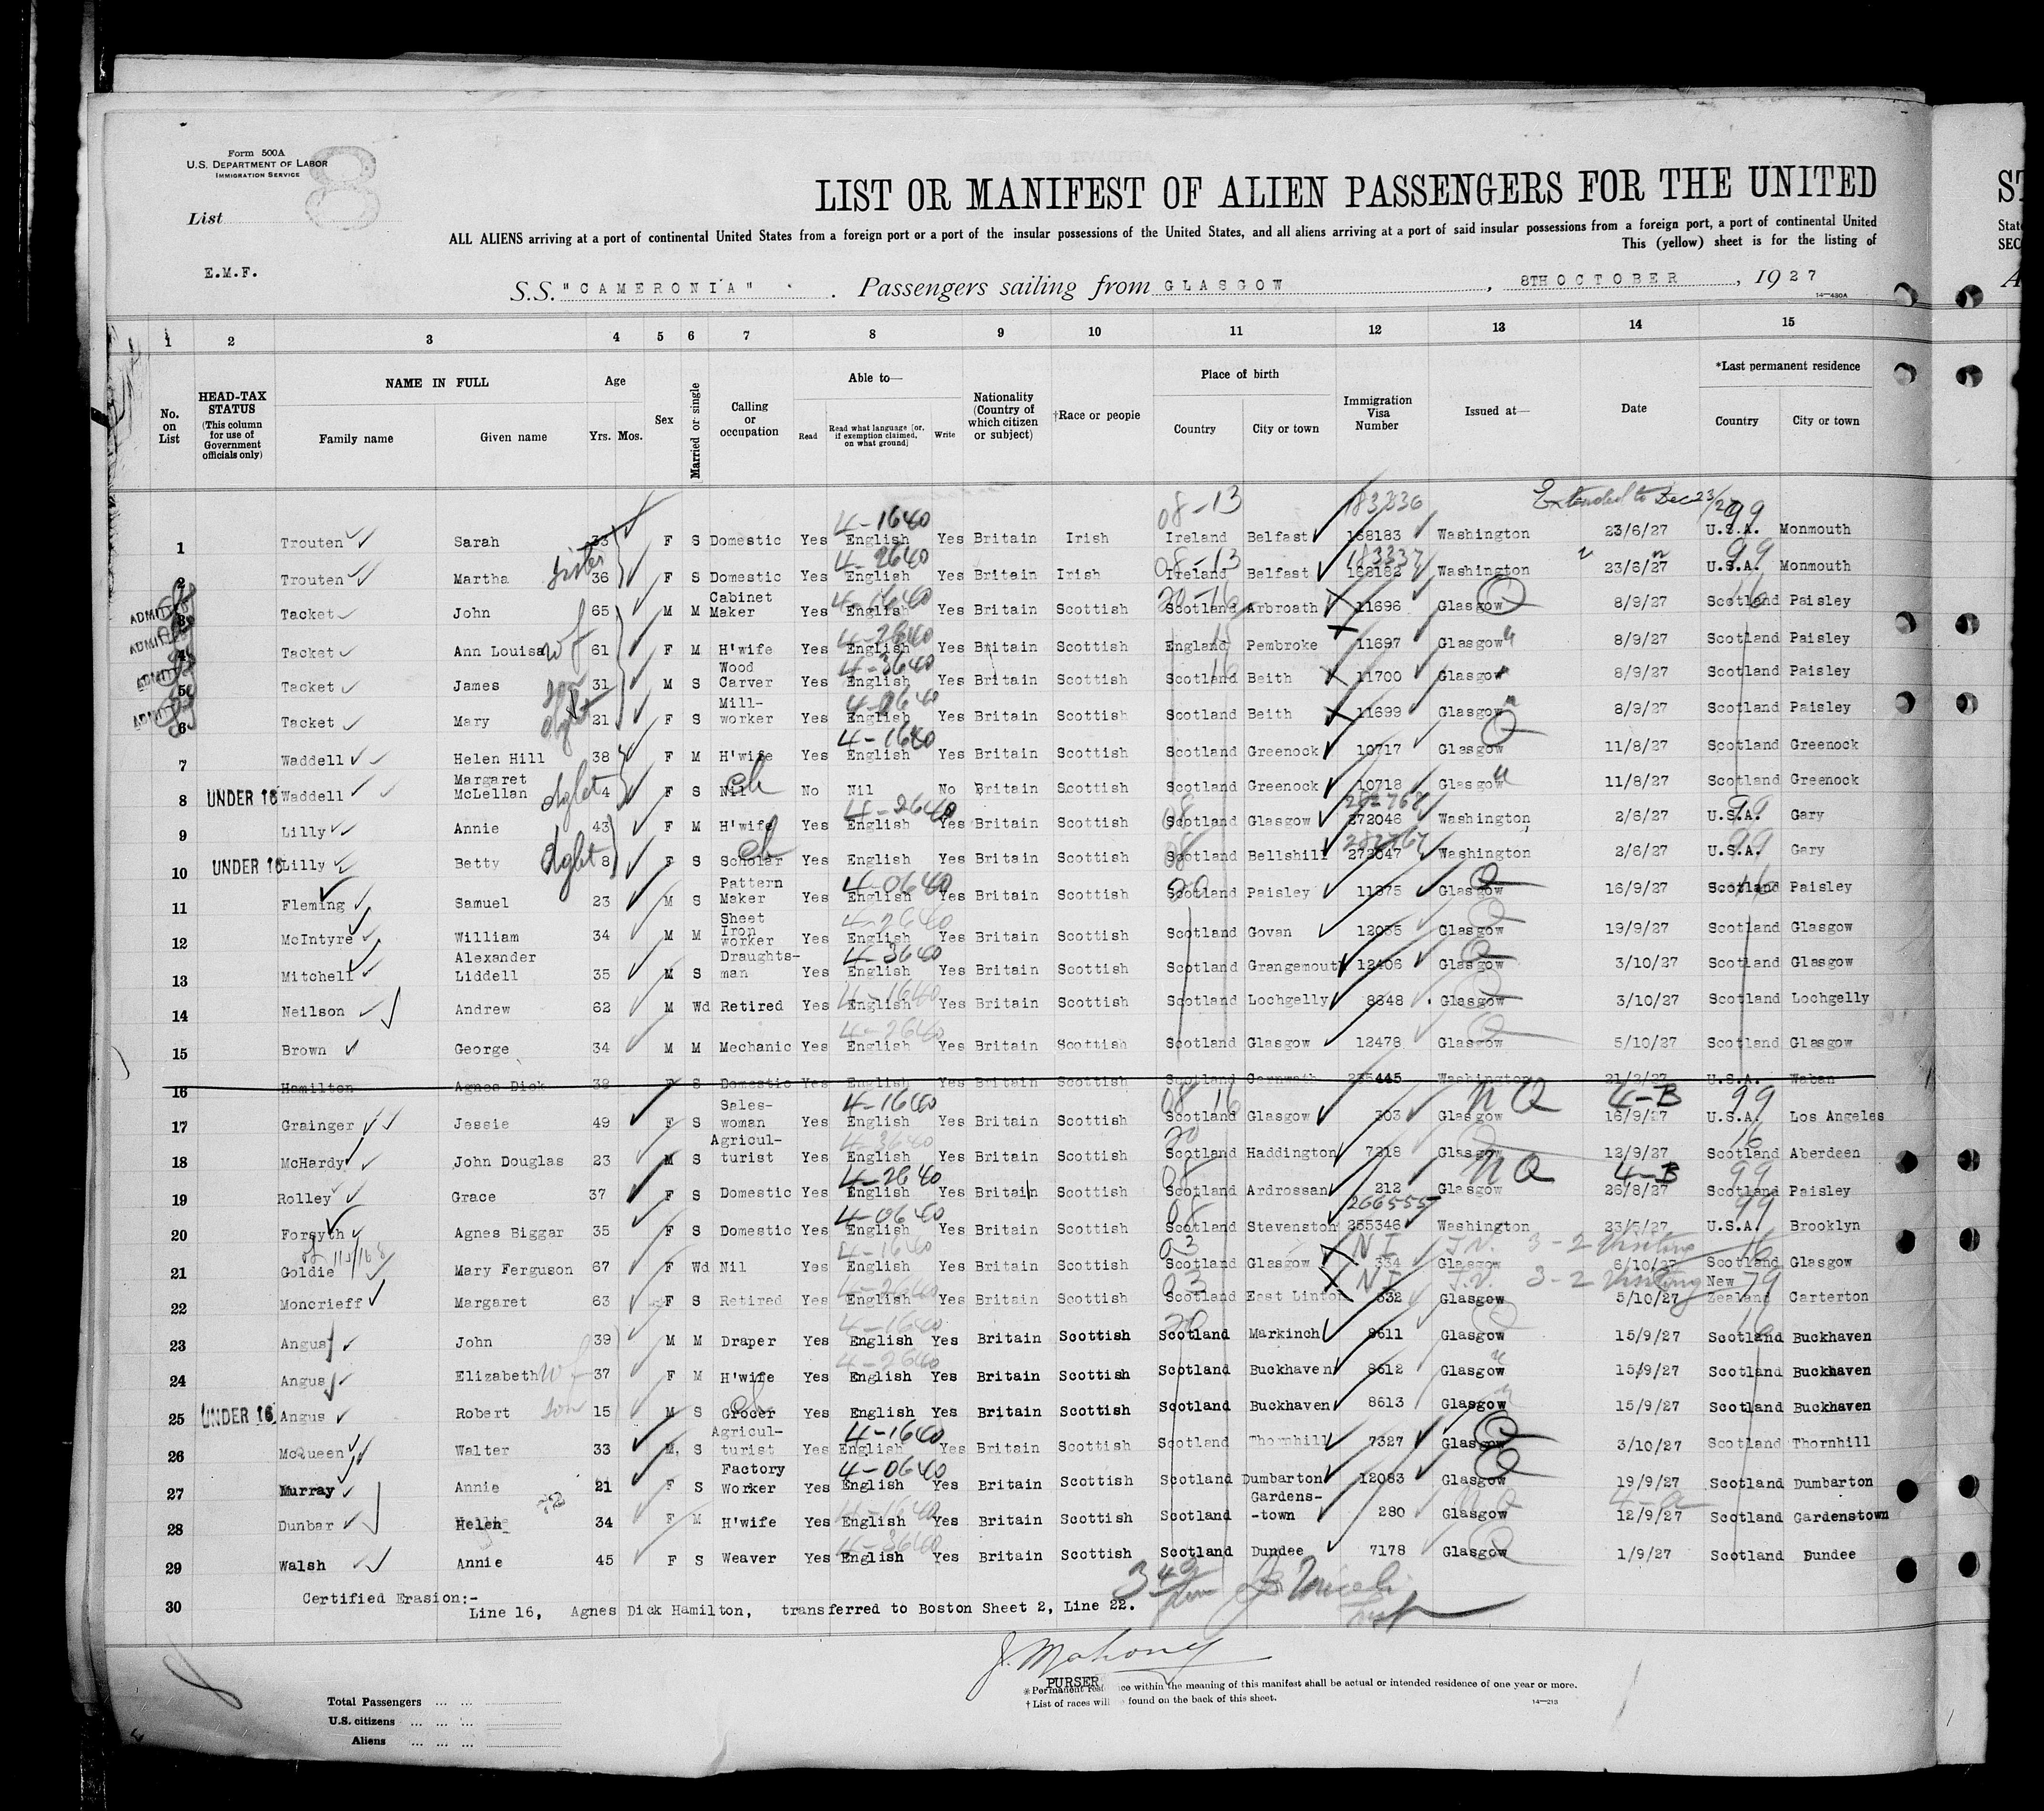 Form 500A
U.S. DEPARTMENT OF LABOR
IMMIGRATION SERVICE
8
List
E.M.F.
LIST OR MANIFEST OF ALIEN PASSENGERS FOR THE UNITED
ST
ALL ALIENS arriving at a port of continental United States from a foreign port or a port of the insular possessions of the United States, and all aliens arriving at a port of said insular possessions from a foreign port, a port of continental United
State
This (yellow) sheet is for the listing of
SEC
S.S. "CAMERONIA" . Passengers sailing from GLASGOW, 8TH OCTOBER, 1927
A
14—430A
1 2 3 4 5 6 7 8 9 10 11 12 13 14 15
No. on List
HEAD-TAX STATUS (This column for use of Government officials only)
NAME IN FULL Family name Given name
Age Yrs. Mos.
Sex
Married or single
Calling or occupation
Able to— Read Read what language [or, if exemption claimed, on what ground] Write
Nationality (Country of which citizen or subject)
†Race or people
Place of birth Country City or town
Immigration Visa Number
Issued at—
Date
*Last permanent residence Country City or town
08-13 183336 Extended to Dec 23/27 99
4-1640
1 Trouten Sarah 33 F S Domestic Yes English Yes Britain Irish Ireland Belfast 168183 Washington 23/6/27 U.S.A. Monmouth
sister 4-2640 08-13 183337 99
2 Trouten Martha 36 F S Domestic Yes English Yes Britain Irish Ireland Belfast 168182 Washington 23/6/27 U.S.A. Monmouth
ADMITTED 4-1640 20-16 Q 16
3 Tacket John 65 M M Cabinet Maker Yes English Yes Britain Scottish Scotland Arbroath 11696 Glasgow 8/9/27 Scotland Paisley
ADMITTED wf 4-2640
4 Tacket Ann Louisa 61 F M H'wife Yes English Yes Britain Scottish England Pembroke 11697 Glasgow 8/9/27 Scotland Paisley
ADMITTED son 4-3640 16
5 Tacket James 31 M S Wood Carver Yes English Yes Britain Scottish Scotland Beith 11700 Glasgow 8/9/27 Scotland Paisley
ADMITTED dght 4-0640
6 Tacket Mary 21 F S Mill-worker Yes English Yes Britain Scottish Scotland Beith 11699 Glasgow 8/9/27 Scotland Paisley
4-1640 Q
7 Waddell Helen Hill 38 F M H'wife Yes English Yes Britain Scottish Scotland Greenock 10717 Glasgow 11/8/27 Scotland Greenock
8 UNDER 16 Waddell Margaret McLellan dght 4 F S Nil ch No Nil No Britain Scottish Scotland Greenock 10718 Glasgow 11/8/27 Scotland Greenock
4-2640 08 282768 99
9 Lilly Annie 43 F M H'wife Yes English Yes Britain Scottish Scotland Glasgow 272046 Washington 2/6/27 U.S.A. Gary
08 282767 99
10 UNDER 16 Lilly Betty dght 8 F S Scholar ch Yes English Yes Britain Scottish Scotland Bellshill 272047 Washington 2/6/27 U.S.A. Gary
4-0640 20 Q 16
11 Fleming Samuel 23 M S Pattern Maker Yes English Yes Britain Scottish Scotland Paisley 11375 Glasgow 16/9/27 Scotland Paisley
4-2640 Q
12 McIntyre William 34 M M Sheet Iron worker Yes English Yes Britain Scottish Scotland Govan 12035 Glasgow 19/9/27 Scotland Glasgow
4-3640 Q
13 Mitchell Alexander Liddell 35 M S Draughts-man Yes English Yes Britain Scottish Scotland Grangemouth 12406 Glasgow 3/10/27 Scotland Glasgow
4-1640 Q
14 Neilson Andrew 62 M Wd Retired Yes English Yes Britain Scottish Scotland Lochgelly 8648 Glasgow 3/10/27 Scotland Lochgelly
4-2640 Q
15 Brown George 34 M M Mechanic Yes English Yes Britain Scottish Scotland Glasgow 12478 Glasgow 5/10/27 Scotland Glasgow
16 Hamilton Agnes Dick 39 F S Domestic Yes English Yes Britain Scottish Scotland Carnwath 235445 Washington 21/2/27 U.S.A. Waban
4-1640 08 16 NQ 4-B 99
17 Grainger Jessie 49 F S Sales-woman Yes English Yes Britain Scottish Scotland Glasgow 303 Glasgow 16/9/27 U.S.A. Los Angeles
4-3640 20 Q 16
18 McHardy John Douglas 23 M S Agricul-turist Yes English Yes Britain Scottish Scotland Haddington 7218 Glasgow 12/9/27 Scotland Aberdeen
4-2640 08 NQ 4-B 99
19 Rolley Grace 37 F S Domestic Yes English Yes Britain Scottish Scotland Ardrossan 212 Glasgow 26/8/27 Scotland Paisley
4-0640 08 266555 99
20 Forsyth Agnes Biggar 35 F S Domestic Yes English Yes Britain Scottish Scotland Stevenston 255346 Washington 23/5/27 U.S.A. Brooklyn
4-1640 03 NI 3-2 Visiting 16
21 Goldie Mary Ferguson 67 F Wd Nil Yes English Yes Britain Scottish Scotland Glasgow 334 Glasgow 6/10/27 Scotland Glasgow
4-2640 03 NI 3-2 Visiting 79
22 Moncrieff Margaret 63 F S Retired Yes English Yes Britain Scottish Scotland East Linton 332 Glasgow 5/10/27 New Zealand Carterton
4-1640 20 Q 16
23 Angus John 39 M M Draper Yes English Yes Britain Scottish Scotland Markinch 8611 Glasgow 15/9/27 Scotland Buckhaven
4-2640
24 Angus Elizabeth wf 37 F M H'wife Yes English Yes Britain Scottish Scotland Buckhaven 8612 Glasgow 15/9/27 Scotland Buckhaven
25 UNDER 16 Angus Robert son 15 M S Grocer ch Yes English Yes Britain Scottish Scotland Buckhaven 8613 Glasgow 15/9/27 Scotland Buckhaven
4-1640 Q
26 McQueen Walter 33 M. S Agricul-turist Yes English Yes Britain Scottish Scotland Thornhill 7327 Glasgow 3/10/27 Scotland Thornhill
4-0640 Q
27 Murray Annie 21 F S Factory Worker Yes English Yes Britain Scottish Scotland Dumbarton 12083 Glasgow 19/9/27 Scotland Dumbarton
4-1640 NQ 4-a
28 Dunbar Helen 34 F M H'wife Yes English Yes Britain Scottish Scotland Gardens--town 280 Glasgow 12/9/27 Scotland Gardenstown
4-3640 Q
29 Walsh Annie 45 F S Weaver Yes English Yes Britain Scottish Scotland Dundee 7178 Glasgow 1/9/27 Scotland Dundee
Certified Erasion:-
30 Line 16, Agnes Dick Hamilton, transferred to Boston Sheet 2, Line 22.
J. Mahony
PURSER
Total Passengers ... ...
U.S. citizens ... ... ...
Aliens ... ... ...
* Permanent residence within the meaning of this manifest shall be actual or intended residence of one year or more.
† List of races will be found on the back of this sheet.
14—213